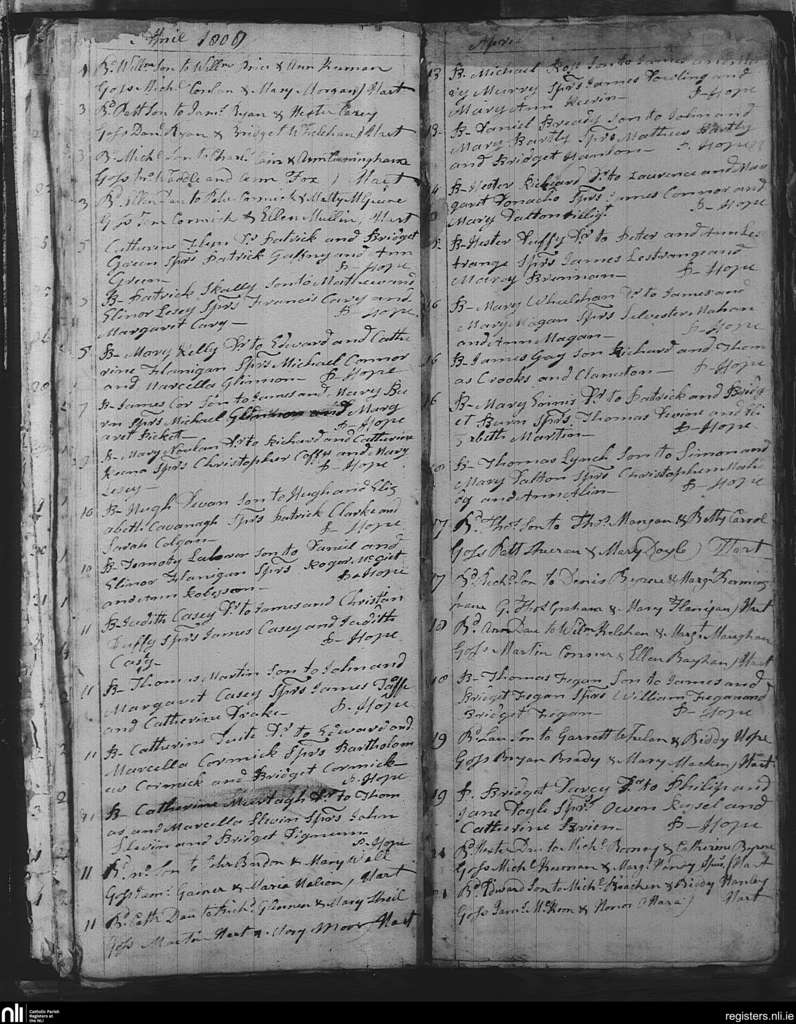 April 1809
1 Bd. Willm son to Willm Price & Ann Keenan
Goss Michl Conlan & Mary Morgan / Hart
3 Bd. Patt son to Jams. Ryan & Hester Casey
Goss Danl Ryan & Bridget Whelehan / Hart
3 Bd. Michl son to Chars. Cain & Ann Cuningham
Goss Weddle and Ann Fox / Hart
3 Bd. Ellen Dau to Peter Cormick & Matty
Goss Jon Cormick & Ellen Mullin / Hart
5 Catherine Flyn Dr Patrick and Bridget
Green Sprs Patrick Gaffney and Ann
Green B- Hope
5 B- Patrick Skally Son to Mathew and
Elinor Casey Sprs Francis Cavy and
Margaret Cavy- B- Hope
5 B- Mary Kelly Dr to Edward and Cathe
rine Flanigan Sprs Michael Connor
and Marcella Glinnon- B- Hope
7 B- James Cox Son to James and Mary Bi
rn Sprs Michael and Mary
Picket- B- Hope
9 B- Mary Conlan Dr to Richard and Catherine
Keena Sprs Christopher Coffy and Mary
Casey- B- Hope
10 B- Hugh Devan Son to Hugh and Eliz
abeth Cavanagh Sprs Patrick Clarke and
Sarah Colgan- B- Hope
10 B- Timothy Lalor Son to Daniel and
Elinor Flanigan Sprs Roger
and Ann Robeyson- B- Hope
11 B- Judith Casey Dr to James and Christian
Duffy Sprs James Casey and Judith
Casy- B- Hope
11 B- Thomas Martin Son to John and
Margaret Casey Sprs James Taffe
and Catherine Drake- B- Hope
11 B- Catherine Tuite Dr to Edward and
Marcella Cormick Sprs Bartholom
ew Cormick and Bridget Cormick-
B- Hope
11 B- Catherine Murtagh Dr to Thom
as and Marcella Slevin Sprs John
Slevin and Bridget
B- Hope
11 Bd. son to Edwd & Mary Wall
Goss Jams. Gainer & Maria Nalion / Hart
11 Bd. Cath Dau to Richd. Glinnon & Mary Shiel
Goss Martin Hart & Mary Moor / Hart
April
13 B- Michael Son to James and
Murry Sprs James Dowling and
Mary Ann B- Hope
13- B- Daniel Bready Son to John and
Mary Bartly Sprs Mathew Bartly
and Bridget B- Hope
14 B- Hester Dr to Laurence and Mar
garet Donacho Sprs James Connor and
Mary Dalton B- Hope
B- Hester Duffy Dr to Peter and Ann Les
trange Sprs James Lestrange and
Marcy Brennan- B- Hope
16 B- Mary Whealahan Dr to James and
Mary Magan Sprs Silvester Mahon
and Ann Magan- B- Hope
16 B- James Gay Son Richard and Thom
as Crooks and Clandon- B- Hope
16 B- Mary Dr to Patrick and Bridg
et Burn Sprs Thomas and Eli
zabeth Martin- B- Hope
B- Thomas Lynch Son to Simon and
Mary Dalton Sprs Christopher
and Ann B- Hope
17 Bd. Thos. Son to Thos. Mangan & Betty Carrol
Goss Patt & Mary Doyle / Hart
17 Bd. Richd. Son to Denis Byrne & Margt.
G. Thos Graham & Mary Flanigan / Hart
18 Bd. Ann Dau to Willm Kelehan & Margt Maughan
Goss Martin Conner & Ellen / Hart
18 B- Thomas Fegan Son to James and
Bridget Fegan Sprs William Fegan and
Bridget Fegan- B- Hope
19 Bd. Lau Son to Garrett Whelan & Biddy Hope
Goss Bryan Brady & Mary Macken / Hart
19 B. Bridget Darcy Dr to Philip and
Jane Doyle Sprs Owen and
Catherine Brien- B- Hope
Bd. Hester Dau to Michl. Rooney & Catherine Byrne
Goss Michl. Keenan & Margt / Hart
Bd. Edward Son to Michl. Bracken & Biddy Hanley
Goss Jams. & Honor Hara / Hart
nli
Catholic Parish
Registers at
the NLI
registers.nli.ie